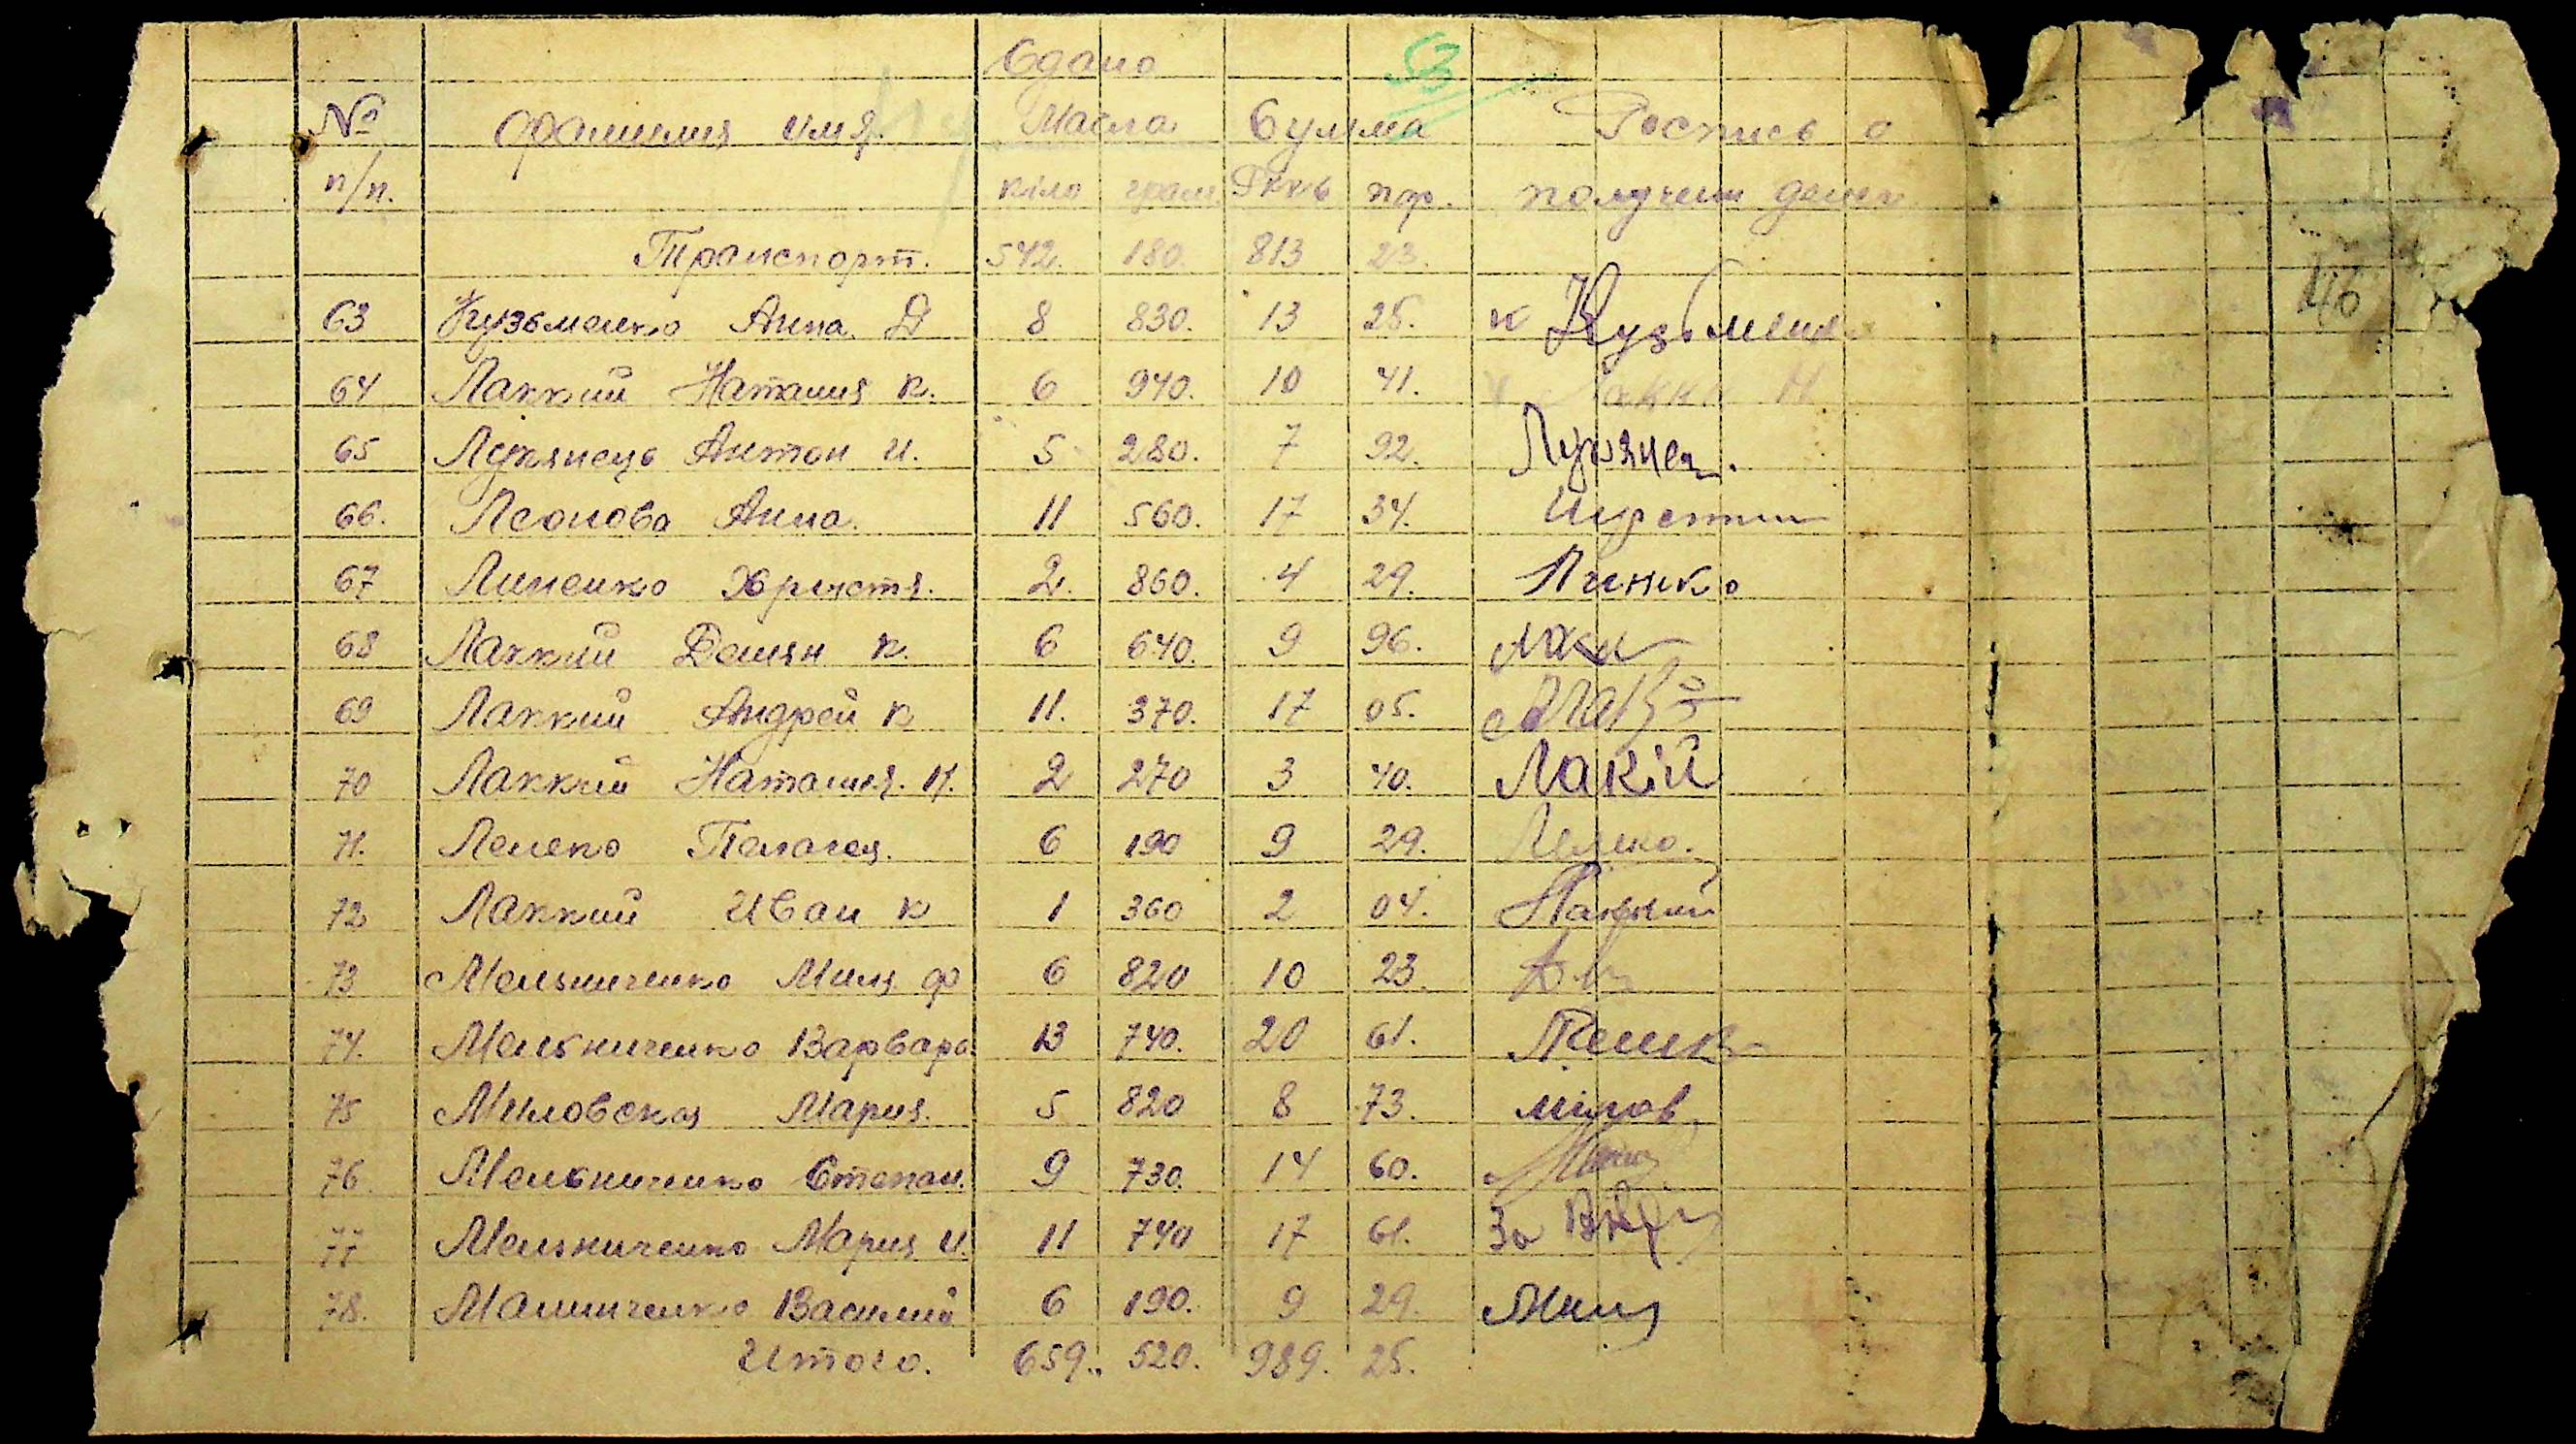 Сдано
53
№ Фамилия имя. Масла Сумма Роспись о
п/п. кіло грам. Ркк пф. получении денег
Транспорт. 542. 180. 813 23.
46
63 Кузьменко Анна Д 8 830. 13 25. Кузьменко
64 Лаккий Наталия К. 6 940. 10 41. Лакк Н
65 Лукянець Антон И. 5 280. 7 92. Лукянец.
66. Леонова Анна. 11 560. 17 34.
67 Линенко Христя. 2. 860. 4 29. Линнко
68 Лаккий Демян К. 6 640. 9 96. Лакк
69 Лаккий Андрей К 11. 370. 17 05.
70 Лаккий Наталия. И. 2 270 3 40. Лакій
71. Лелеко Пелагея. 6 190 9 29. Лелеко.
72 Лаккий Иван К 1 360 2 04. Лаккий
73 Мельниченко Миля Ф 6 820 10 23.
74. Мельниченко Варвара. 13 740. 20 61.
75 Миловская Мария. 5 820 8 73. мілов
76 Мельниченко Степан. 9 730. 14 60.
77 Мельниченко Мария И. 11 740 17 61. За
78. Малинченко Василий 6 190. 9 29.
Итого. 659.. 520. 989. 25.